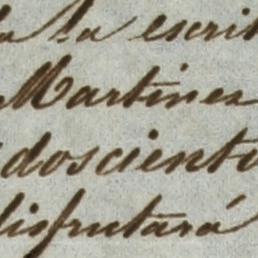 la escrit
Martinez
doscient
disfrutará